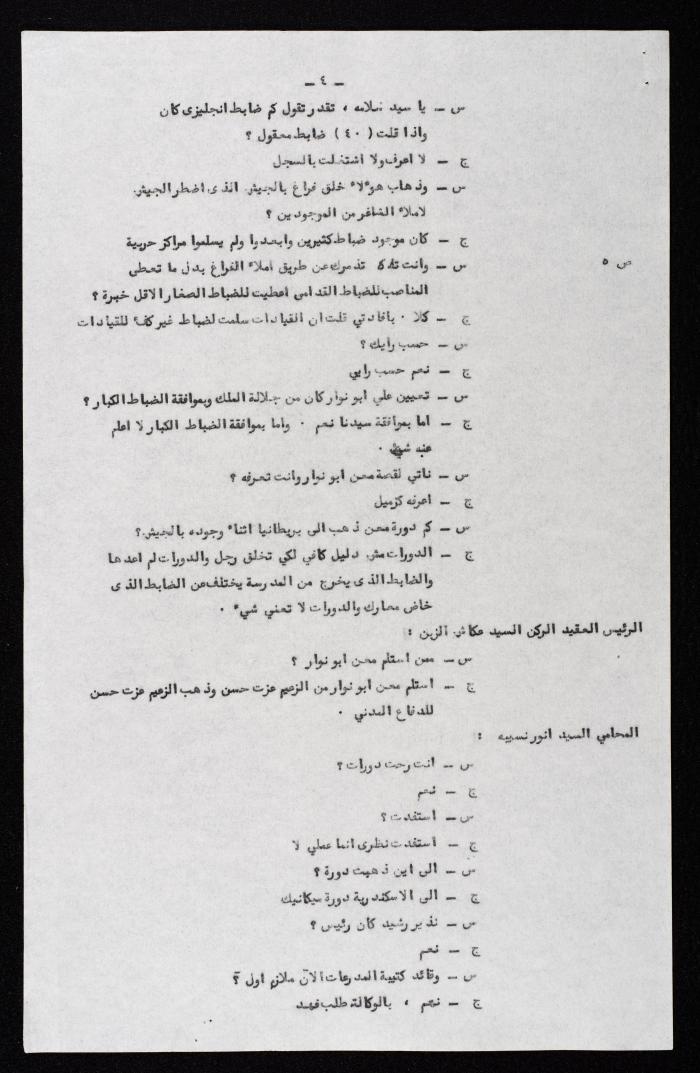 ـ ٤ ـ
س ـ يا سيد سلامه ، تقدر تقول كم ضابط انجليزى كان
واذا قلت ( ٤٠ ) ضابط معقول ؟
ج ـ لا اعرف ولا اشتغلت بالسجل
س ـ وذهاب هؤلاء خلق فراغ بالجيش. الذى اضطر الجيش.
لاملاء الشاغر من الموجودين ؟
ج ـ كان موجود ضباط كثيرين وابعدوا ولم يسلموا مراكز حربية
ص ٥
س ـ وانت تذمرك عن طريق املاء الفراغ بدل ما تعطى
المناصب للضباط القدامى اعطيت للضباط الصغار الاقل خبرة ؟
ج ـ كلا . بافادتي قلت ان القيادات سلمت لضباط غير كفء للقيادات
س ـ حسب رايك ؟
ج ـ نعم حسب رايي
س ـ تعيين علي ابو نوار كان من جلالة الملك وبموافقة الضباط الكبار ؟
ج ـ اما بموافقة سيدنا نعم . واما بموافقة الضباط الكبار لا اعلم
عنه شيء .
س ـ ناتي لقصة معن ابو نوار وانت تعرفه ؟
ج ـ اعرفه كزميل
س ـ كم دورة معن ذهب الى بريطانيا اثناء وجوده بالجيش.؟
ج ـ الدورات مش. دليل كافي لكي تخلق رجل والدورات لم اعدها
والضابط الذى يخرج من المدرسة يختلف عن الضابط الذى
خاض معارك والدورات لا تعني شيء .
الرئيس العقيد الركن السيد عكاش. الزبن :
س ـ ممن استلم معن ابو نوار ؟
ج ـ استلم معن ابو نوار من الزعيم عزت حسن وذهب الزعيم عزت حسن
للدفاع المدني .
المحامي السيد انور نسيبه :
س ـ انت رحت دورات ؟
ج ـ نعم
س ـ استفدت ؟
ج ـ استفدت نظرى انما عملي لا
س ـ الى اين ذهبت دورة ؟
ج ـ الى الاسكندرية دورة ميكانيك
س ـ نذير رشيد كان رئيس ؟
ج ـ نعم
س ـ وقائد كتيبة المدرعات الآن ملازم اول ؟
ج ـ نعم ، بالوكالة طلب فهد